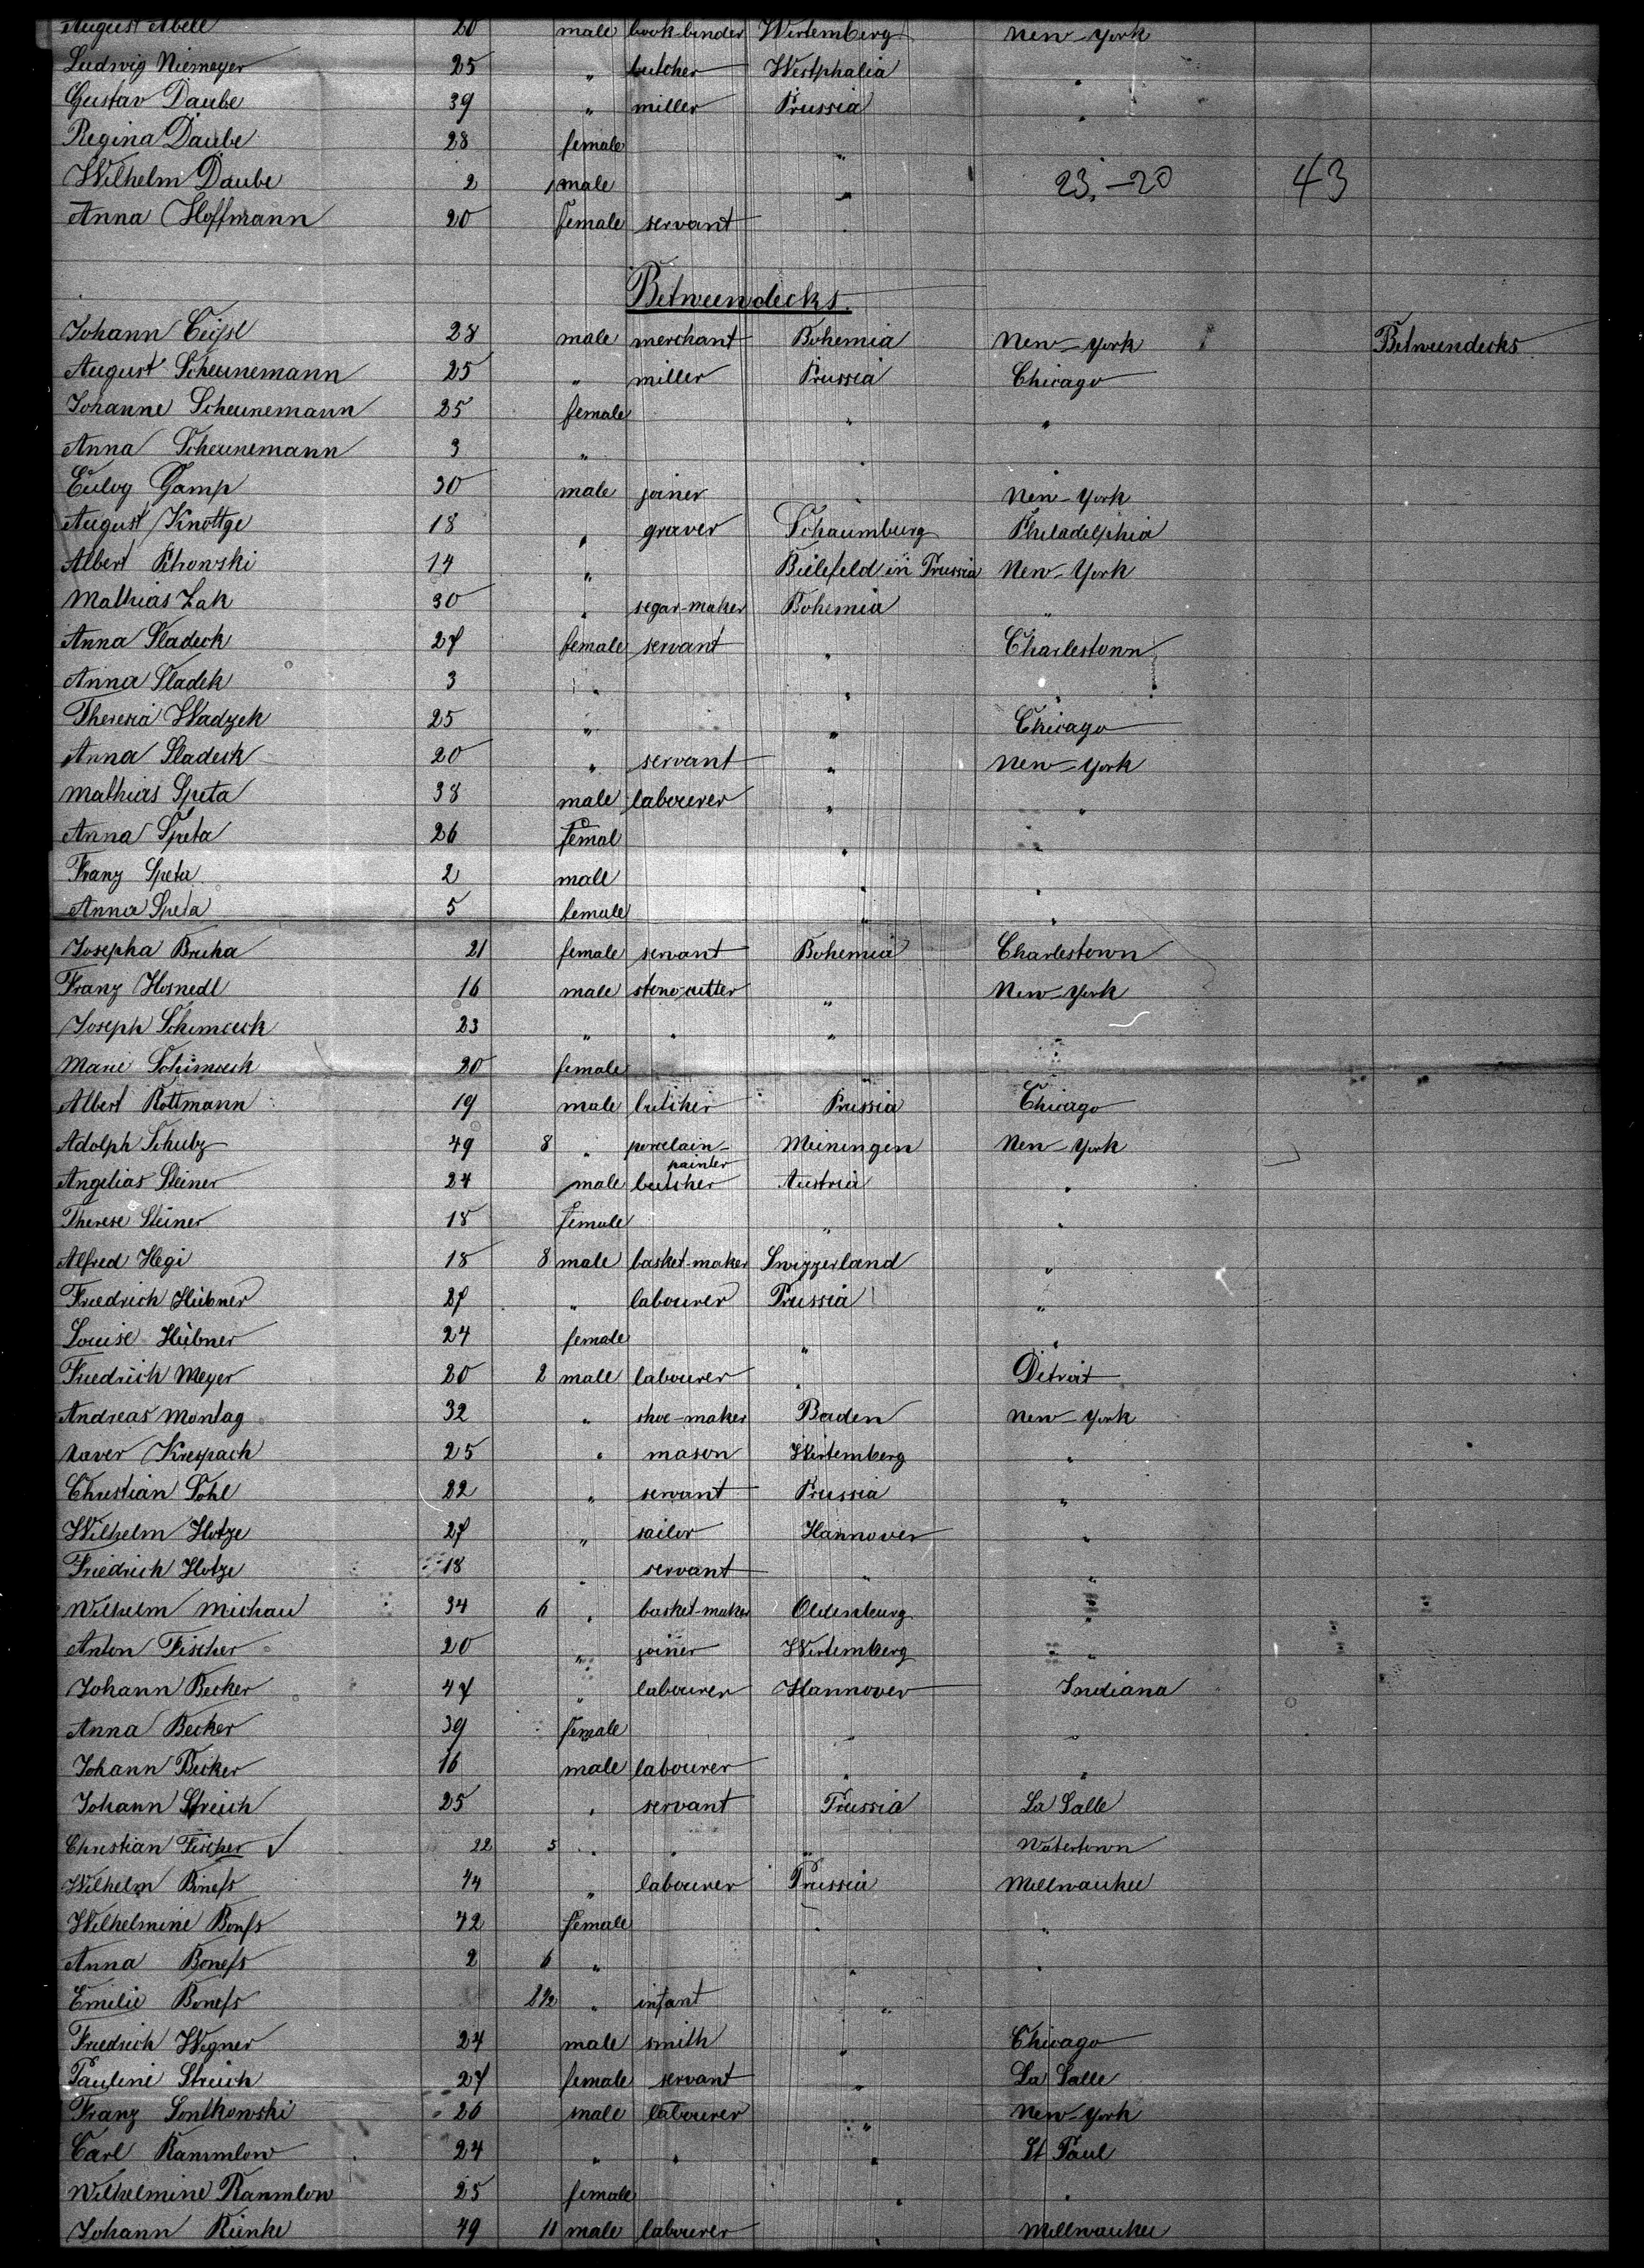 August Abele 20 male book-binder Wirtemberg New-York
Ludwig Niemeyer 25 " butcher Westphalia "
Gustav Daube 39 " miller Prussia "
Regina Daube 28 female "
Wilhelm Daube 2 male " 23.-20 43
Anna Hoffmann 20 female servant "
Betweendecks.
Johann 28 male merchant Bohemia New-York Betweendecks
August Scheunemann 25 " miller Prussia Chicago
Johanne Scheunemann 25 female " "
Anna Scheunemann 3 " " "
Eulog Gamp 30 male joiner " New-York
August Knottge 18 " graver Schaumburg Philadelphia
Albert 14 " Bielefeld in Prussia New-York
Mathias Zak 30 " segar-maker Bohemia "
Anna Sladeck 27 female servant " Charlestown
Anna Sladek 3 " " "
Theresia Wadzek 25 " " Chicago
Anna Sladeck 20 " servant " New-York
Mathias Speta 38 male labourer " "
Anna Speta 26 femal " "
Franz Speta 2 male " "
Anna Speta 5 female " "
Josepha Bruha 21 female servant Bohemia Charlestown
Franz Hosnedl 16 male stone-cutter " New-York
Joseph Schimceck 23 " " " "
Marie Schimceck 20 female " "
Albert Rottmann 19 male butcher Prussia Chicago
Adolph Schulz 49 8 " porcelain- Meiningen New-York
painter
Angelias Steiner 24 male butcher Austria "
Therese Steiner 18 female " "
Alfred Hegi 18 8 male basket-maker Swizzerland "
Friedrich Hübner 27 " labourer Prussia "
Louise Hübner 24 female " "
Friedrich Meyer 20 2 male labourer " Detroit
Andreas Montag 32 " shoe-maker Baden New-York
Xaver Krespach 25 " mason Wirtemberg "
Christian Sohl 22 " servant Prussia "
Wilhelm Hotze 27 " sailor Hannover "
Friedrich Hotze 18 " servant " "
Wilhelm Michau 34 6 " basket-maker Oldenburg "
Anton Fischer 20 " joiner Wirtemberg "
Johann Becker 47 " labourer Hannover Indiana
Anna Becker 39 female " "
Johann Becker 16 male labourer " "
Johann Streich 25 " servant Prussia La Salle
Christian Fischer ✓ 22 5 " " " Watertown
Wilhelm Boness 44 " labourer Prussia Millwaukee
Wilhelmine Boness 42 female " "
Anna Boness 2 6 " " "
Emilie Boness " infant "
Friedrich Wegner 24 male smith " Chicago
Pauline Streich 27 female servant " La Salle
Franz Sontkowski 26 male labourer " New-York
Carl Rammlow 24 " " " St Paul
Wilhelmine Rammlow 25 female " "
Johann Rünke 49 11 male labourer " Millwaukee